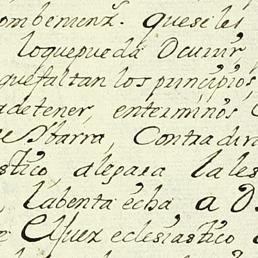 ombenienz.ª quese les
loquepueda Ocurrir
quefaltan los principios,
adetener, enterminos
Ybarra, Contradiri
stico, alegara la les
labenta echa a D
e el Juez eclesiastico